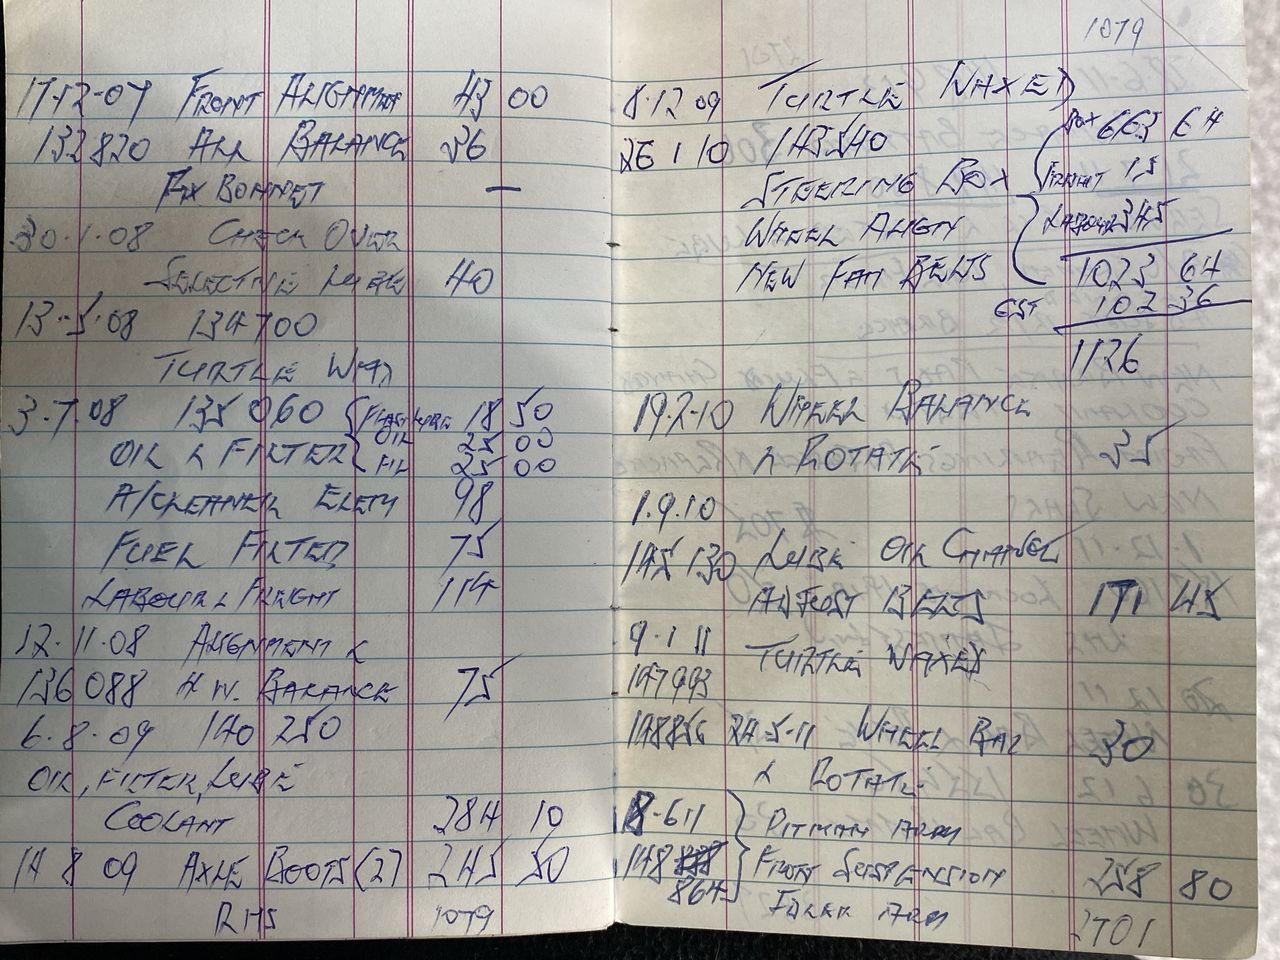 17-12-07 FRONT ALIGNMENT 43 00
132820 ALL BALANCE 36
FIX BONNET —
30.1.08 CHECK OVER
SELECTIVE LUBE 40
13-5.08 134700
TURTLE WAX
3.7.08 135060 18 50
OIL & FILTER { OIL 25 00
FIL 25 00
A/CLEANER ELEM 98
FUEL FILTER 75
LABOUR & FREIGHT 114
12.11.08 ALIGNMENT &
136088 & W. BALANCE 75
6.8.09 140250
OIL, FILTER, LUBE
COOLANT 284 10
14 8 09 AXLE BOOTS (2) 245 50
RHS 1079
1079
8.12 09 TURTLE WAXED
26 1 10 143540 BOX 663 64
STEERING BOX FREIGHT 15
WHEEL ALIGN LABOUR 345
NEW FAN BELTS 1023 64
GST 102 36
1126
19.2-10 WHEEL BALANCE
& ROTATE 35
1.9.10
145130 LUBE OIL CHANGE
ADJUST BELTS 171 45
9.1 11 TURTLE WAXED
147993
148856 24-5-11 WHEEL BAL 30
& ROTATE
8-6 11 PITMAN ARM
148 FRONT SUSPENSION 258 80
864 IDLER ARM
2701